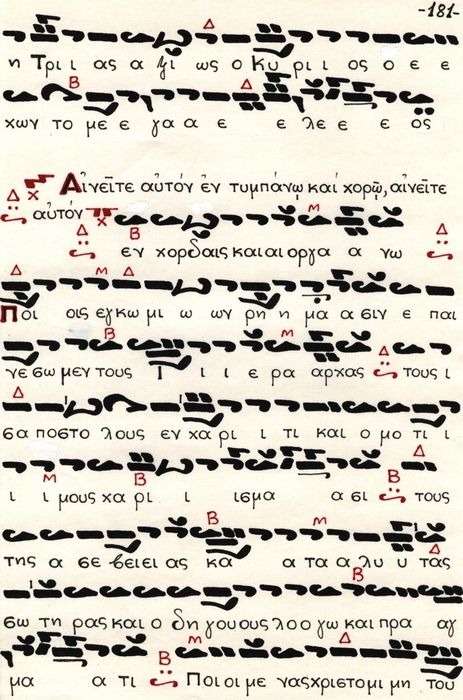 -181-
η Τρι ι ας α ξι ως ο Κυ ρι ι ος ο ε ε
χων το με ε γα α ε ε λε ε ε ος
Αἰνεῖτε αὐτόν ἐν τυμπάνῳ καί χορῷ, αἰνεῖτε
αὐτόν
εν χορδαις και αι οργα α νω
Ποι οις εγκω μι ω ων ρη η μα α σιν ε παι
νε σω μεν τους Ι ι ι ε ρα αρχας τους ι
σα ποστο λους εν χα ρι ι τι και ο μο τι ι
ι ι μους χα ρι ι ισμα α σι τους
της α σε βειει ας κα α τα α λυ υ τας
σω τη ρας και ο δη γου ους λο ο γω και πρα αγ
μα α τι Ποι οι με γας χριστο μι μη του